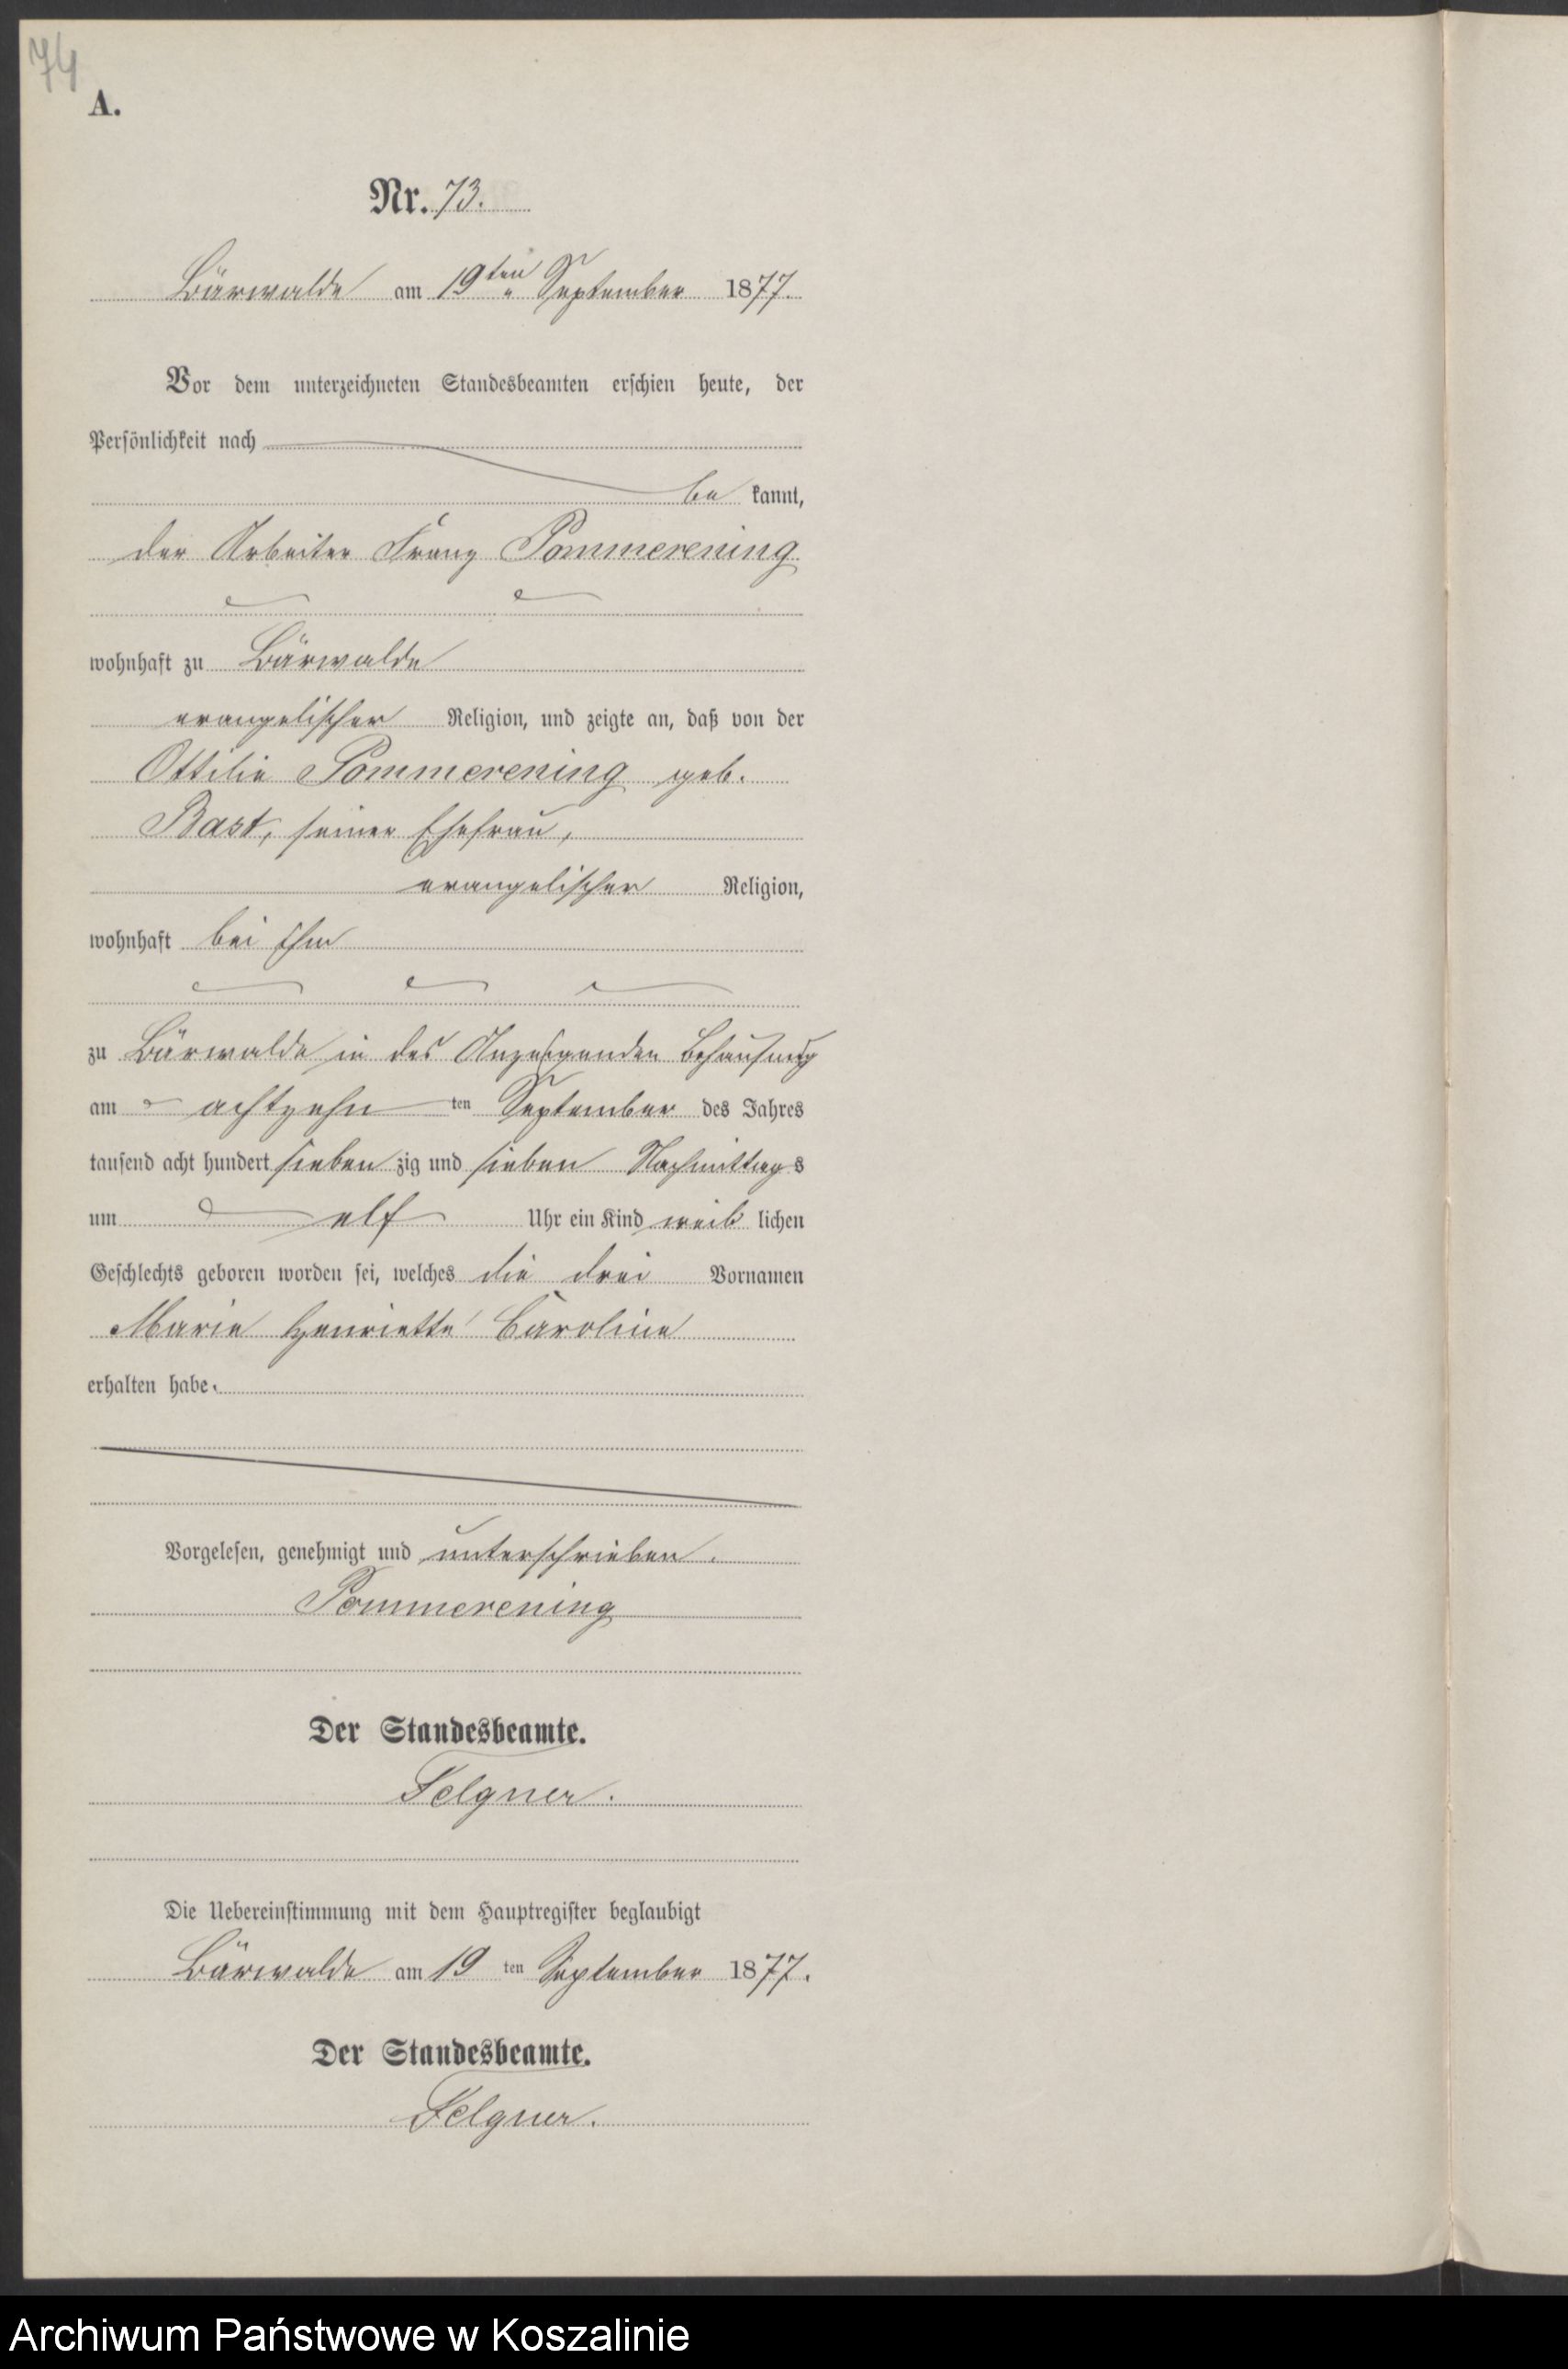 74
A.
Nr. 73.
Bärwalde am 19ten September 1877.
Vor dem unterzeichneten Standesbeamten erschien heute, der
Persönlichkeit nach
be kannt,
der Arbeiter Franz Pommerening
wohnhaft zu Bärwalde
evangelischer Religion, und zeigte an, daß von der
Ottilie Pommerening geb.
Bast, seiner Ehefrau,
evangelischer Religion,
wohnhaft bei ihm
zu Bärwalde in des Anzeigenden Behausung
am achtzehn ten September des Jahres
tausend acht hundert sieben zig und sieben Nachmittags
um elf Uhr ein Kind weib lichen
Geschlechts geboren worden sei, welches die drei Vornamen
Marie Henriette Caroline
erhalten habe.
Vorgelesen, genehmigt und unterschrieben.
Pommerening
Der Standesbeamte.
Felgner.
Die Uebereinstimmung mit dem Hauptregister beglaubigt
Bärwalde am 19 ten September 1877.
Der Standesbeamte.
Felgner.
Archiwum Państwowe w Koszalinie